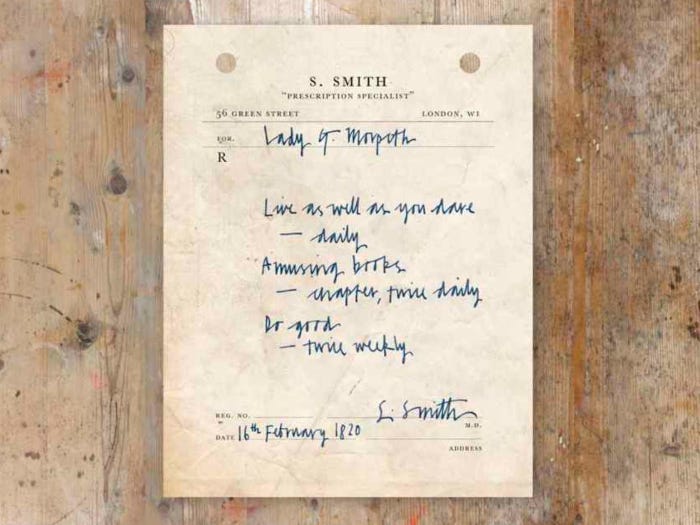 S. SMITH
“PRESCRIPTION SPECIALIST”
56 GREEN STREET LONDON, W1
FOR. Lady G. Morpeth
R
Live as well as you dare
— daily
Amusing books
— chapter, twice daily
Do good
— twice weekly
S. Smith
REG. NO.
M.D.
DATE 16th February 1820
ADDRESS